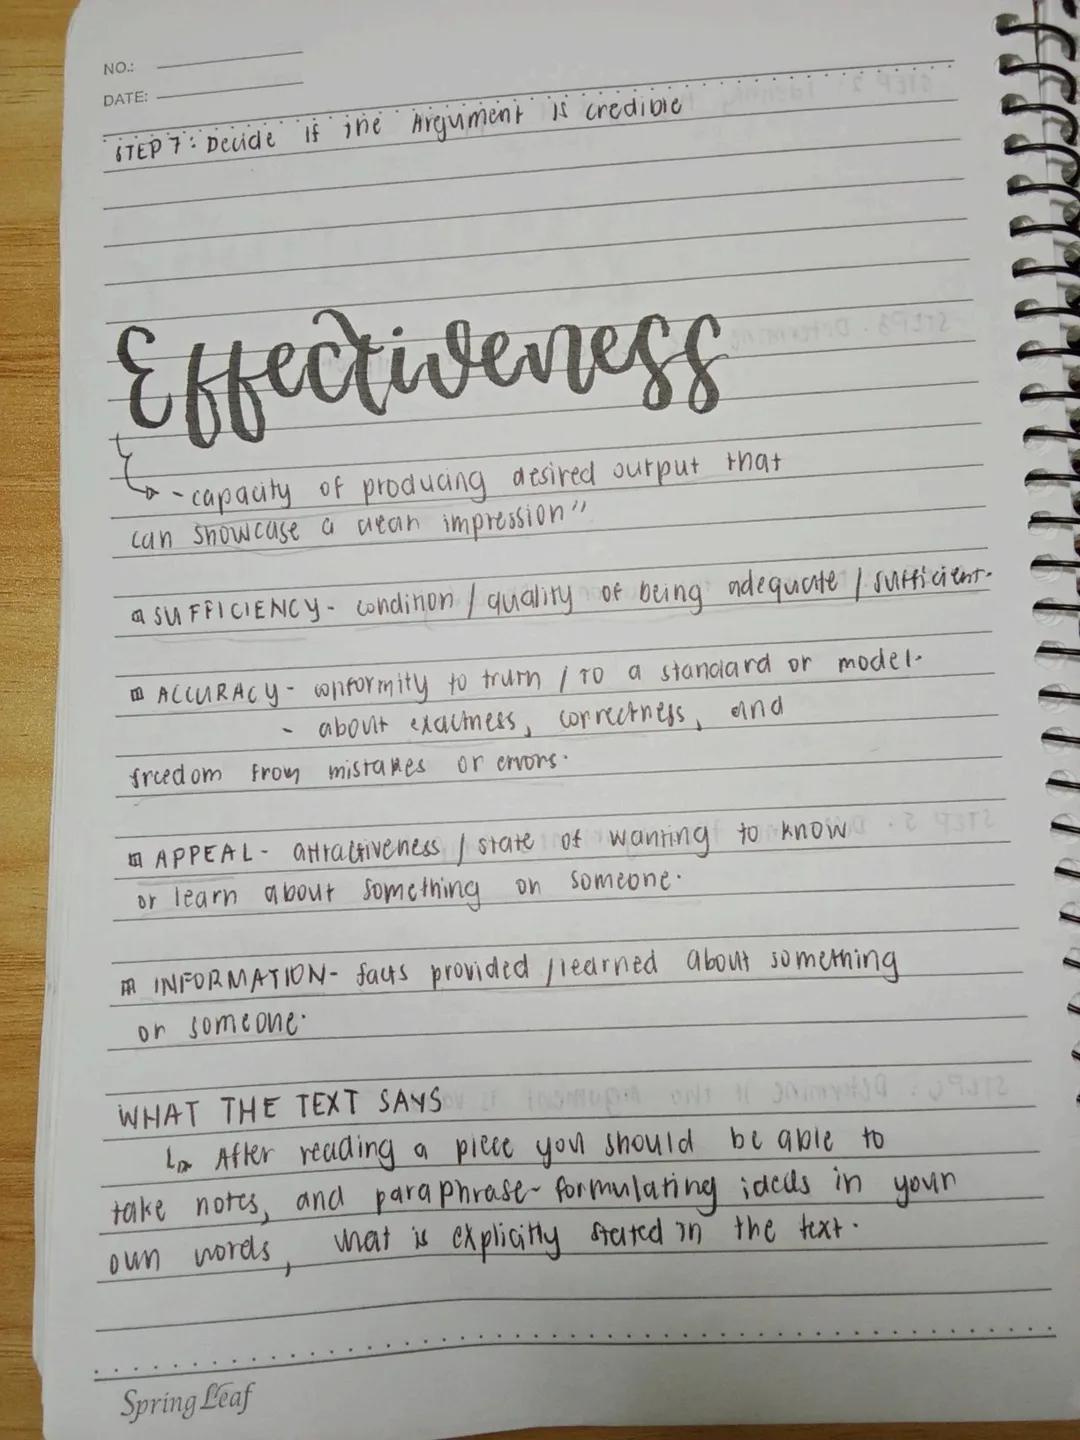 NO.:
DATE:
STEP 7: Decide if the Argument is credible
Effectiveness
- capacity of producing desired output that
can showcase a clean impression"
SUFFICIENCY - condition / quality of being adequate / sufficient.
ACCURACY - conformity to truth / to a standard or model.
- about exactness, correctness, and
freedom from mistakes or errors.
APPEAL - attractiveness / state of wanting to know
or learn about something or someone.
INFORMATION - facts provided / learned about something
or someone.
WHAT THE TEXT SAYS
After reading a piece you should be able to
take notes, and paraphrase - formulating ideas in your
own words, what is explicitly stated in the text.
Spring Leaf